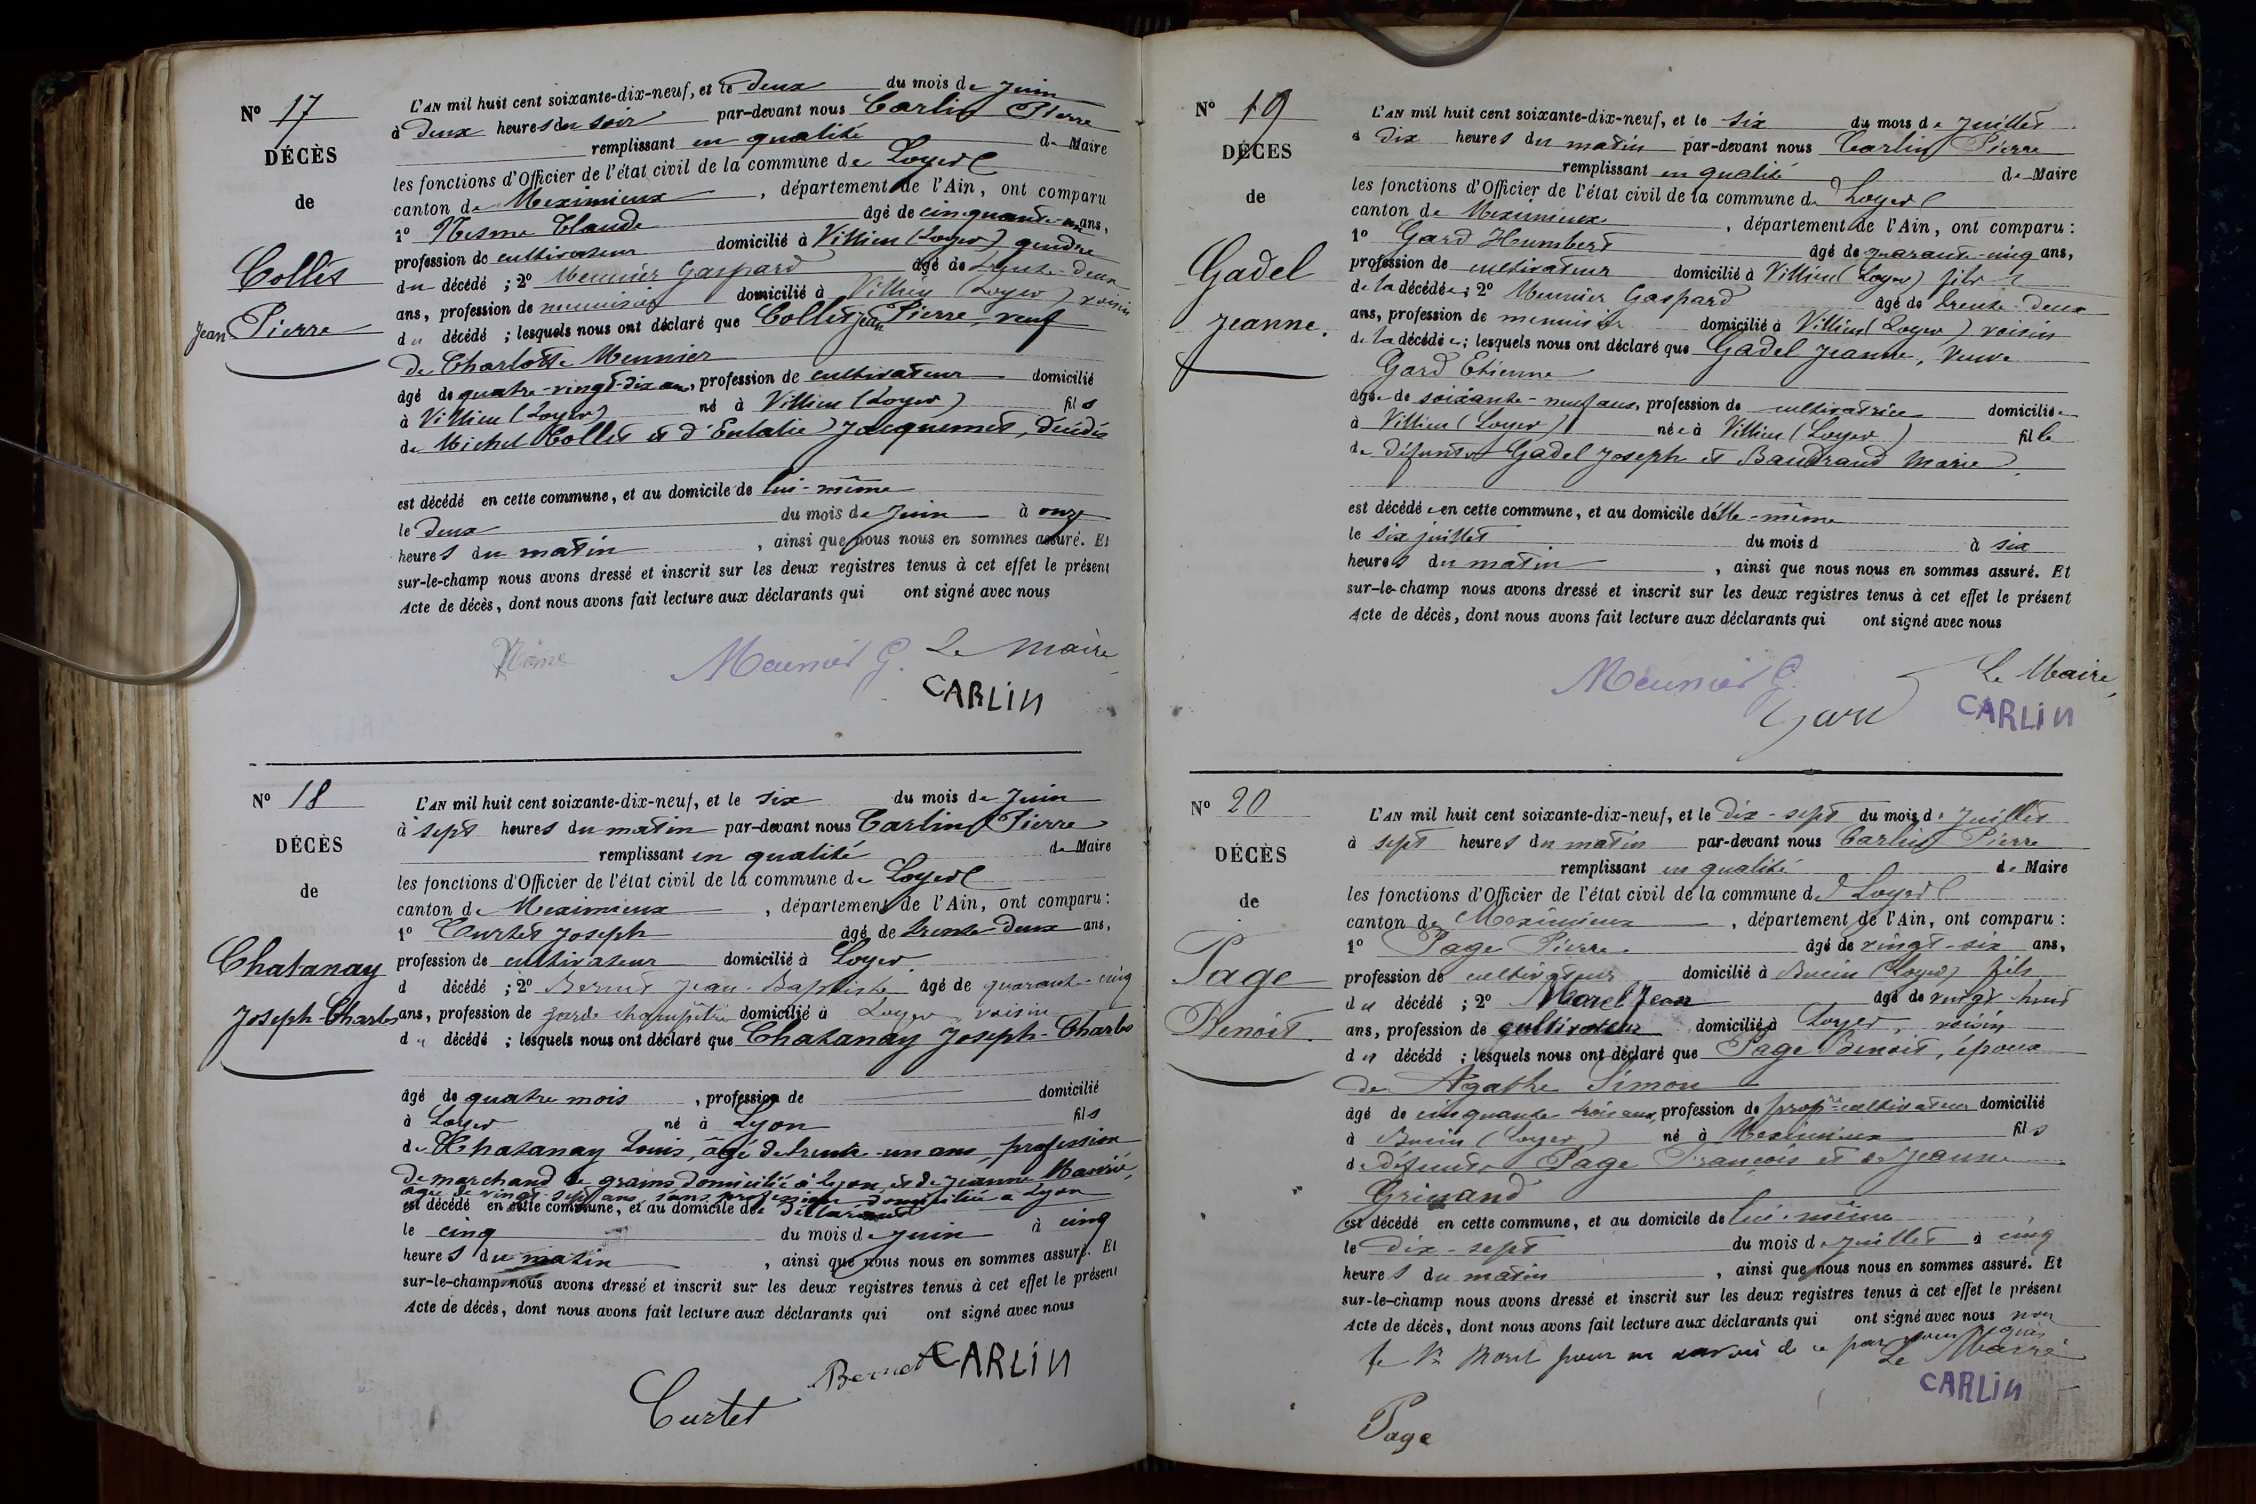 N° 17
DÉCÈS
de
Collet
Jean Pierre
L'AN mil huit cent soixante-dix-neuf, et le deux du mois de Juin
à deux heures du soir par-devant nous Carlin Pierre
remplissant en qualité de Maire
les fonctions d'Officier de l'état civil de la commune de Loyes
canton de Meximieux, département de l'Ain, ont comparu
1° Nesme Claude âgé de cinquante-un ans,
profession de cultivateur domicilié à Villieu (Loyes) gendre
du décédé ; 2° Meunier Gaspard âgé de trente-deux
ans, profession de menuisier domicilié à Villieu (Loyes) voisin
du décédé ; lesquels nous ont déclaré que Collet Jean Pierre, veuf
de Charlotte Meunier
âgé de quatre-vingt-dix ans, profession de cultivateur domicilié
à Villieu (Loyes) né à Villieu (Loyes) fils
de Michel Collet et d'Eulalie Jacquemet, décédés
est décédé en cette commune, et au domicile de lui-même
le deux du mois de Juin à onze
heures du matin, ainsi que nous nous en sommes assuré. Et
sur-le-champ nous avons dressé et inscrit sur les deux registres tenus à cet effet le présent
Acte de décès, dont nous avons fait lecture aux déclarants qui ont signé avec nous
Meunier G. Le Maire
CARLIN
N° 18
DÉCÈS
de
Chatanay
Joseph-Charles
L'AN mil huit cent soixante-dix-neuf, et le six du mois de Juin
à sept heures du matin par-devant nous Carlin Pierre
remplissant en qualité de Maire
les fonctions d'Officier de l'état civil de la commune de Loyes
canton de Meximieux, département de l'Ain, ont comparu :
1° Curtet Joseph âgé de trente-deux ans,
profession de cultivateur domicilié à Loyes
d décédé ; 2° Bernet Jean-Baptiste âgé de quarante-cinq
ans, profession de garde champêtre domicilié à Loyes, voisin
du décédé ; lesquels nous ont déclaré que Chatanay Joseph-Charles
âgé de quatre mois, profession de domicilié
à Loyes né à Lyon fils
de Chatanay Louis, âgé de trente-un ans, profession
de marchand de grains domicilié à Lyon et de Jeanne
âgée de vingt-sept ans, sans profession domiciliée à Lyon
est décédé en cette commune, et au domicile de déclarant
le cinq du mois de Juin à cinq
heures du matin, ainsi que nous nous en sommes assuré. Et
sur-le-champ nous avons dressé et inscrit sur les deux registres tenus à cet effet le présent
Acte de décès, dont nous avons fait lecture aux déclarants qui ont signé avec nous
Curtet Bernet CARLIN
N° 19
DÉCÈS
de
Gadel
Jeanne.
L'AN mil huit cent soixante-dix-neuf, et le six du mois de Juillet
à dix heures du matin par-devant nous Carlin Pierre
remplissant en qualité de Maire
les fonctions d'Officier de l'état civil de la commune de Loyes
canton de Meximieux, département de l'Ain, ont comparu :
1° Gard Humbert âgé de quarante-cinq ans,
profession de cultivateur domicilié à Villieu (Loyes) fils
de la décédée ; 2° Meunier Gaspard âgé de trente-deux
ans, profession de menuisier domicilié à Villieu (Loyes) voisin
de la décédée ; lesquels nous ont déclaré que Gadel Jeanne, veuve
Gard Etienne
âgée de soixante-neuf ans, profession de cultivatrice domiciliée
à Villieu (Loyes) née à Villieu (Loyes) fille
de défunts Gadel Joseph et Baudrand Marie
est décédée en cette commune, et au domicile d'elle-même
le six juillet du mois d à six
heures du matin, ainsi que nous nous en sommes assuré. Et
sur-le-champ nous avons dressé et inscrit sur les deux registres tenus à cet effet le présent
Acte de décès, dont nous avons fait lecture aux déclarants qui ont signé avec nous
Meunier G. Le Maire,
Gard CARLIN
N° 20
DÉCÈS
de
Page
Benoit.
L'AN mil huit cent soixante-dix-neuf, et le dix-sept du mois de Juillet
à sept heures du matin par-devant nous Carlin Pierre
remplissant en qualité de Maire
les fonctions d'Officier de l'état civil de la commune de Loyes
canton de Meximieux, département de l'Ain, ont comparu :
1° Page Pierre âgé de vingt-six ans,
profession de cultivateur domicilié à (Loyes) fils
du décédé ; 2° Morel Jean âgé de vingt-huit
ans, profession de cultivateur domicilié à Loyes, voisin
du décédé ; lesquels nous ont déclaré que Page Benoit, époux
de Agathe Simon
âgé de cinquante-trois ans, profession de propre cultivateur domicilié
à (Loyes) né à Meximieux fils
de défunts Page François et de Jeanne
Grinand
est décédé en cette commune, et au domicile de lui-même
le dix-sept du mois de Juillet à cinq
heures du matin, ainsi que nous nous en sommes assuré. Et
sur-le-champ nous avons dressé et inscrit sur les deux registres tenus à cet effet le présent
Acte de décès, dont nous avons fait lecture aux déclarants qui ont signé avec nous non
le Sr Morel pour ne savoir de ce par nous requis.
Le Maire
CARLIN
Page